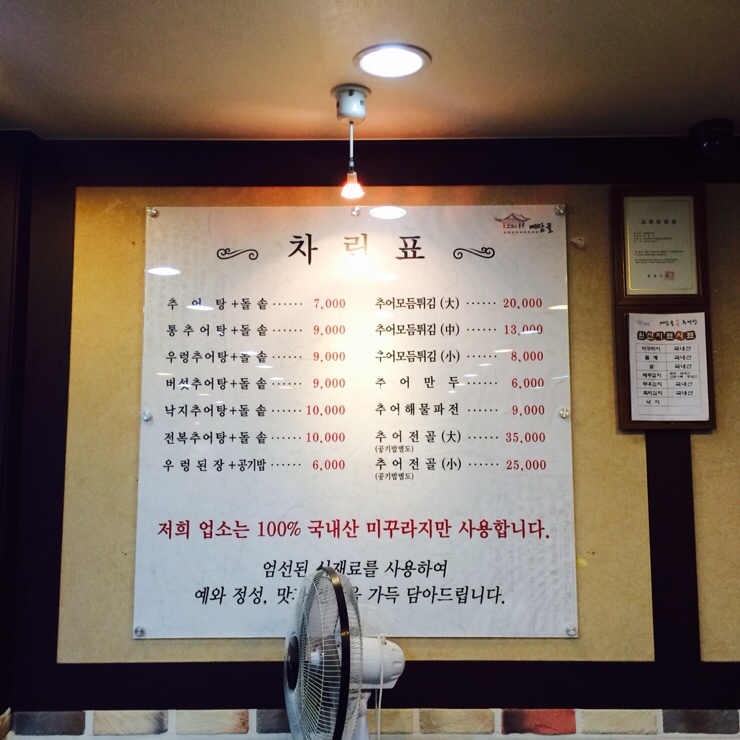 예담골
차림표
추어탕+돌솥 ...... 7,000
통추어탕+돌솥 ...... 9,000
우렁추어탕+돌솥 ...... 9,000
버섯추어탕+돌솥 ...... 9,000
낙지추어탕+돌솥 ...... 10,000
전복추어탕+돌솥 ...... 10,000
우렁된장+공기밥 ...... 6,000
추어모듬튀김 (大) ...... 20,000
추어모듬튀김 (中) ...... 13,000
추어모듬튀김 (小) ...... 8,000
추어만두 ...... 6,000
추어해물파전 ...... 9,000
추어전골 (大) ...... 35,000
(공기밥별도)
추어전골 (小) ...... 25,000
(공기밥별도)
저희 업소는 100% 국내산 미꾸라지만 사용합니다.
엄선된 식재료를 사용하여
예와 정성, 가득 담아드립니다.
원산지표시표
미꾸라지 국내산
들깨 국내산
쌀 국내산
배추김치
무우김치 국내산
국내산
낙지